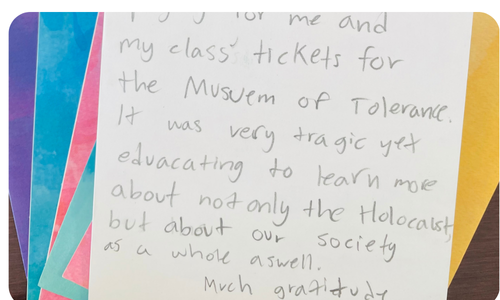 for me and
my class' tickets for
the Musuem of Tolerance.
It was very tragic yet
eduacating to learn more
about not only the Holocaust,
but about our society
as a whole aswell.
Much gratitude